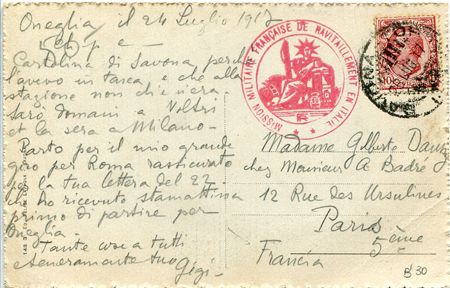 Oneglia il 24 Luglio 1917
Cartolina di Savona perchè
l'avevo in tasca e che alla
stazione non che n'era.
Sarò domani a Voltri
et la sera a Milano.
Parto per il mio grande
giro per Roma rassicurato
per la tua lettera del 22
che ho ricevuto stamattina
primo di partire per
Oneglia.
Tante cose a tutti
e teneramente tuo
Gigi
MISSION MILITAIRE FRANÇAISE DE RAVITAILLEMENT EN ITALIE
RF
10
Madame Gilberto
chez Monsieur A Badré
12 Rue des Ursulines
Paris
5ème
Francia
B 30